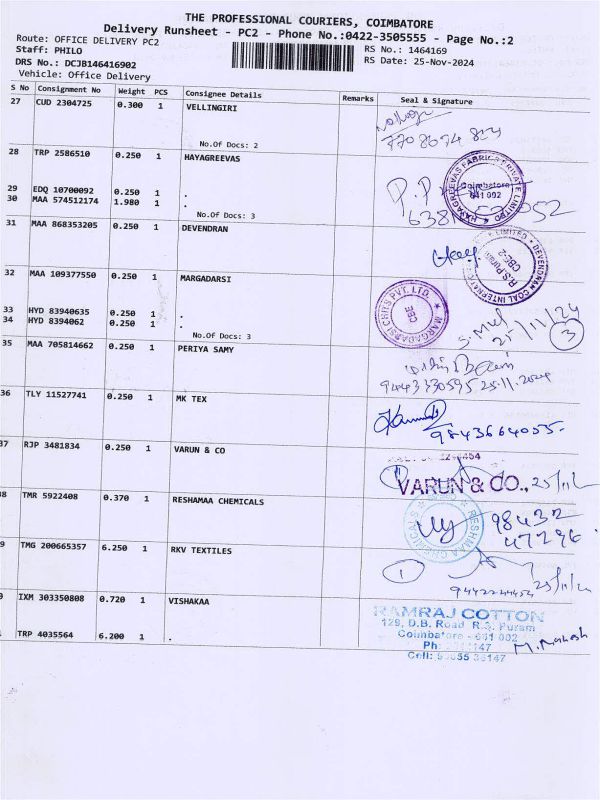 THE PROFESSIONAL COURIERS, COIMBATORE
Delivery Runsheet - PC2 - Phone No.:0422-3505555 - Page No.:2
Route: OFFICE DELIVERY PC2
RS No.: 1464169
Staff: PHILO
RS Date: 25-Nov-2024
DRS No.: DCJB146416902
Vehicle: Office Delivery
S No Consignment No Weight PCS Consignee Details Remarks Seal & Signature
27 CUD 2304725 0.300 1 VELLINGIRI
No.Of Docs: 2
28 TRP 2586510 0.250 1 HAYAGREEVAS
HAYAGREEVAS FABRICS PRIVATE LIMITED
Coimbatore
641 002
29 EDQ 10700092 0.250 1 .
30 MAA 574512174 1.980 1 .
No.Of Docs: 3
31 MAA 868353205 0.250 1 DEVENDRAN
R.S Puram
CBE-2
32 MAA 109377550 0.250 1 MARGADARSI
MARGADARSI CHITS PVT. LTD.
CBE
33 HYD 83940635 0.250 1 .
34 HYD 8394062 0.250 1 .
25/11/24
3
No.Of Docs: 3
35 MAA 705814662 0.250 1 PERIYA SAMY
25.11.2024
36 TLY 11527741 0.250 1 MK TEX
9843664055.
37 RJP 3481834 0.250 1 VARUN & CO
1
VARUN & CO.,
38 TMR 5922408 0.370 1 RESHAMAA CHEMICALS
98432
47296
9 TMG 200665357 6.250 1 RKV TEXTILES
1
IXM 303350808 0.720 1 VISHAKAA
RAMRAJ COTTON
129, D.B. Road R.S. Puram
Coimbatore - 641 002
TRP 4035564 6.200 1 .
M. Mahesh